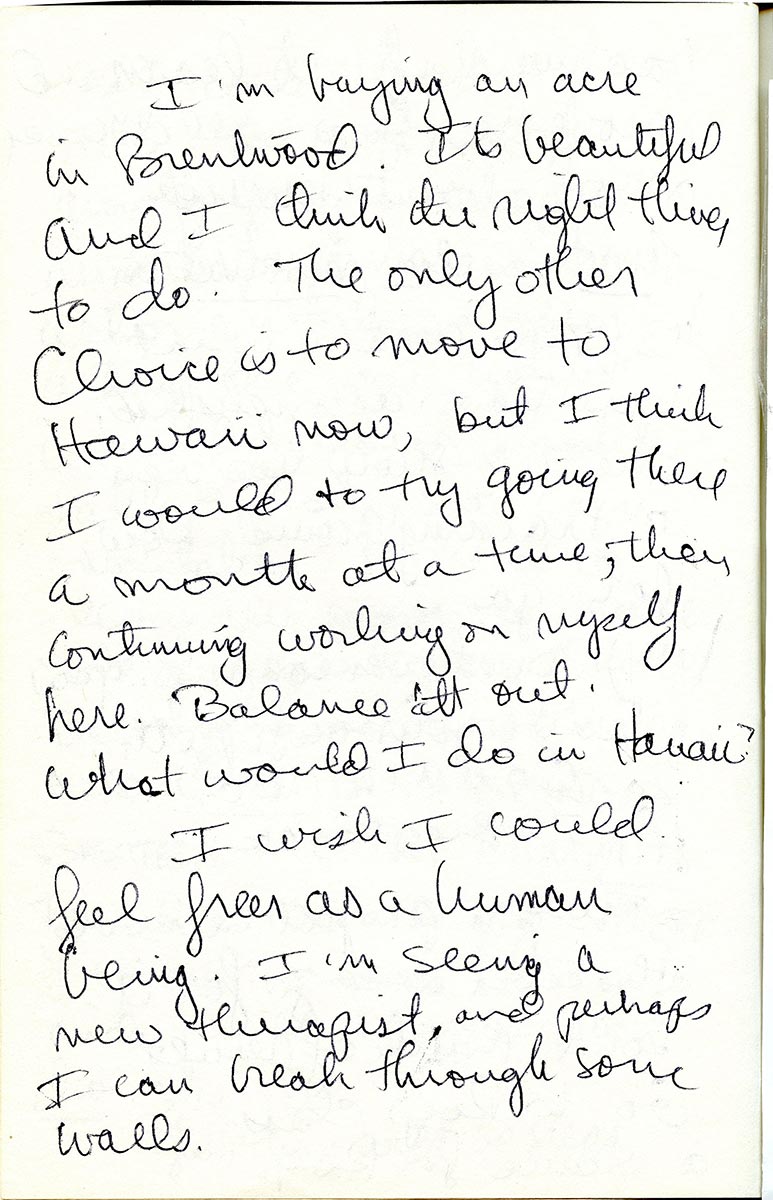 I'm buying an acre
in Brentwood. Its beautiful
and I think the right thing
to do. The only other
Choice is to move to
Hawaii now, but I think
I would to try going there
a month at a time, then
Continuing working on myself
here. Balance it out.
What would I do in Hawaii?
I wish I could
feel freer as a human
being. I'm seeing a
new therapist, and perhaps
I can break through some
walls.